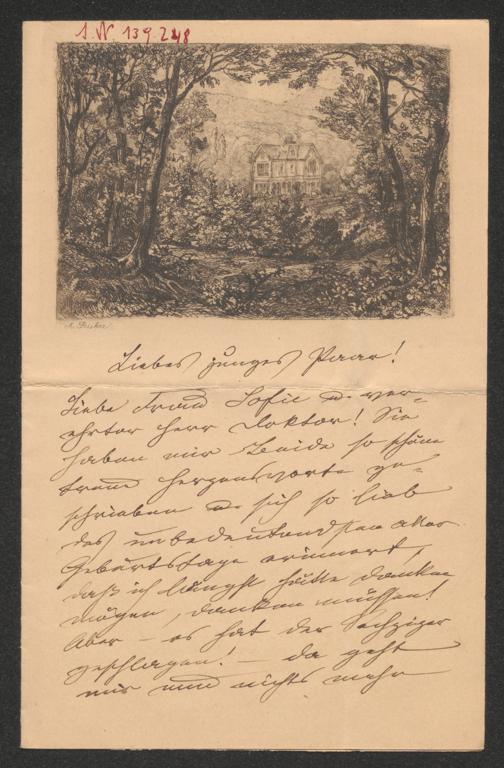 I.N. 139.248
Liebes junges Paar!
Liebe Frau Sofie u. ver-
ehrter Herr Doktor! Sie
haben mir Beide so schöne
treue Herzensworte ge-
schrieben u. sich so lieb
des unbedeutendsten aller
Geburtstage erinnert,
daß ich längst hätte danken
mögen, danken müssen!
Aber – es hat der Sechziger
geschlagen! – da geht
mir nun nichts mehr